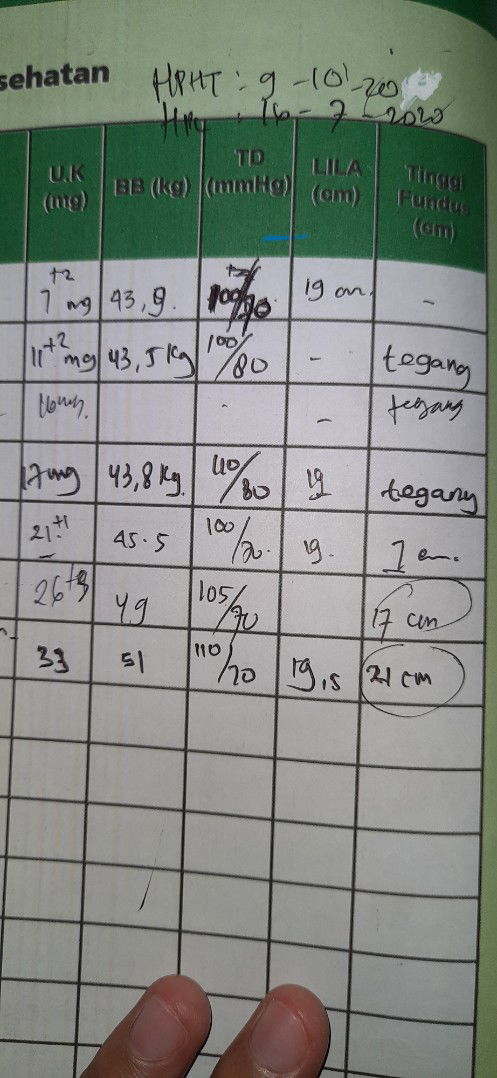 sehatan
HPHT : 9 -10 -20
HPL : 16 - 7 - 2020
U.K (mg) BB (kg) TD (mmHg) LILA (cm) Tinggi Fundus (cm)
7+2 mg 43,9. 100/ 19 cm. -
11+2 mg 43,5 kg 100/80 - tegang
16 mg. - - tegang
17 mg 43,8 kg. 110/80 19 tegang
21+1 45.5 100/70. 19. 7 cm.
26+3 49 105/70 17 cm
33 51 110/70 19,5 21 cm